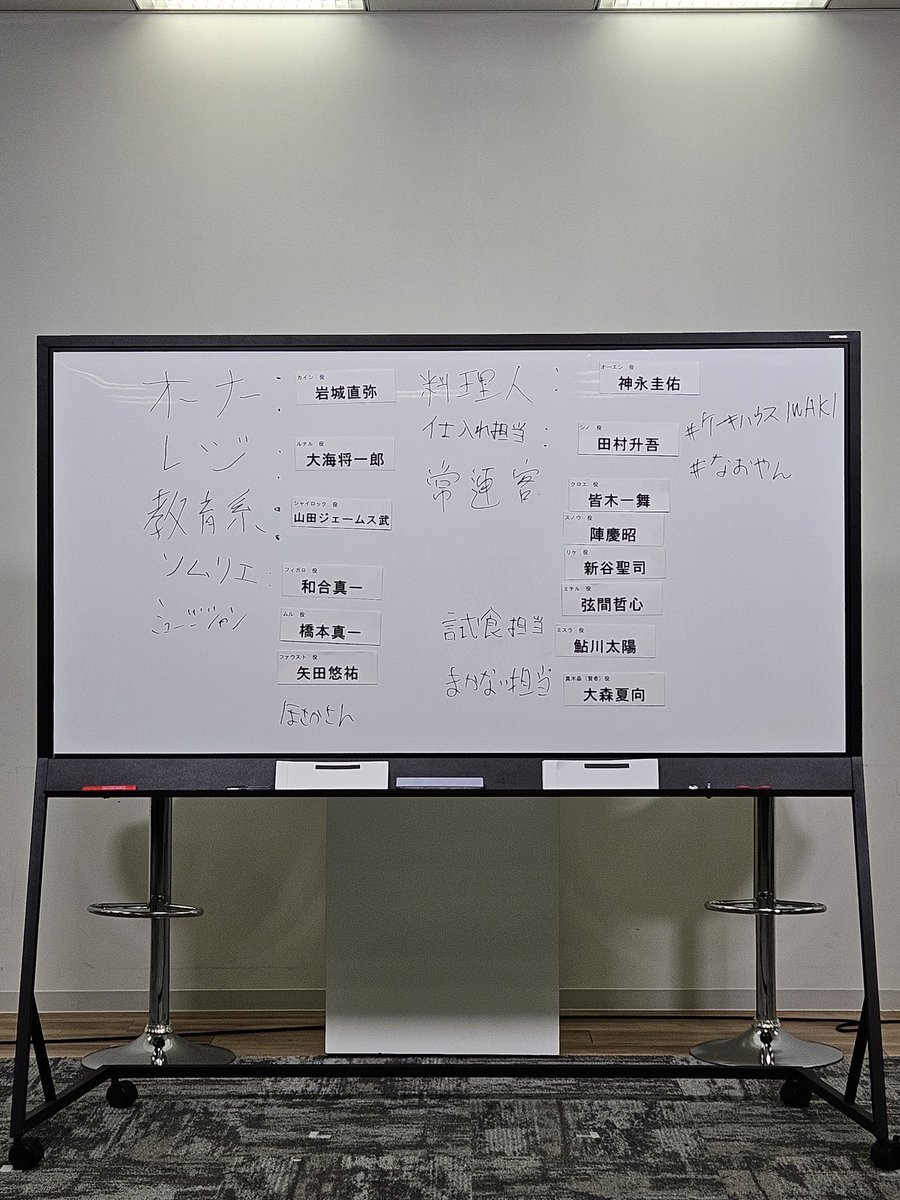 オーナー :
カイン 役
岩城直弥
レジ :
ルチル 役
大海将一郎
教育系 :
シャイロック 役
山田ジェームス武
ソムリエ :
フィガロ 役
和合真一
ミュージシャン
ムル 役
橋本真一
ファウスト 役
矢田悠祐
ほさかさん
料理人 :
オーエン 役
神永圭佑
仕入れ担当 :
シノ 役
田村升吾
常連客
クロエ 役
皆木一舞
スノウ 役
陣慶昭
リケ 役
新谷聖司
ミチル 役
弦間哲心
試食担当
ミスラ 役
鮎川太陽
まかない担当
真木晶（賢者）役
大森夏向
#ケーキハウスIWAKI
#なおやん